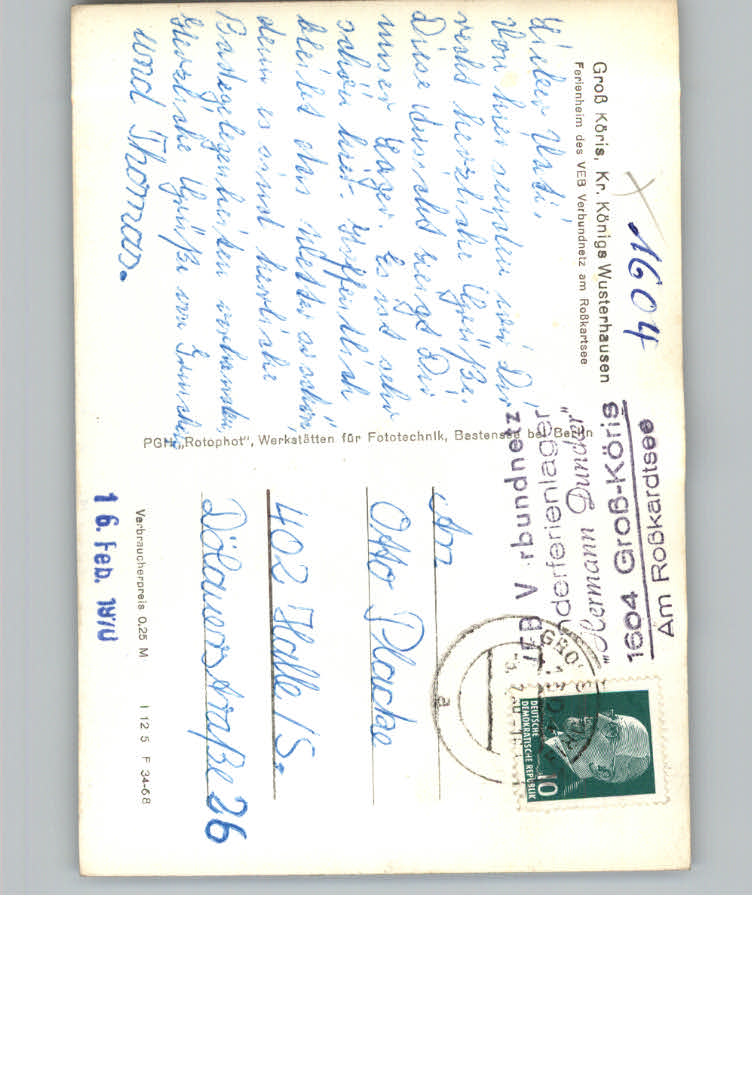 Groß Köris, Kr. Königs Wusterhausen
Ferienheim des VEB Verbundnetz am Roßkartsee
1604
Lieber Vati,
Von hier senden wir Dir
recht herzliche Grüße.
Diese Ansicht zeigt Dir
unser Lager. Es ist sehr
schön hier. Hoffentlich
bleibt das Wetter so schön,
denn es sind herrliche
Badegelegenheiten vorhanden.
Herzliche Grüße von
und Thomas.
PGH „Rotophot", Werkstätten für Fototechnik, Bestensee bei Berlin
VEB V rbundnetz
nderferienlager
„Hermann Duncker"
1604 Groß-Köris
Am Roßkardtsee
DEUTSCHE
DEMOKRATISCHE REPUBLIK
10
a
An
Otto Placke
402 Halle/S.
Dölauerstraße 26
Verbraucherpreis 0,25 M I 12 5 F 34-68
16. Feb. 1970